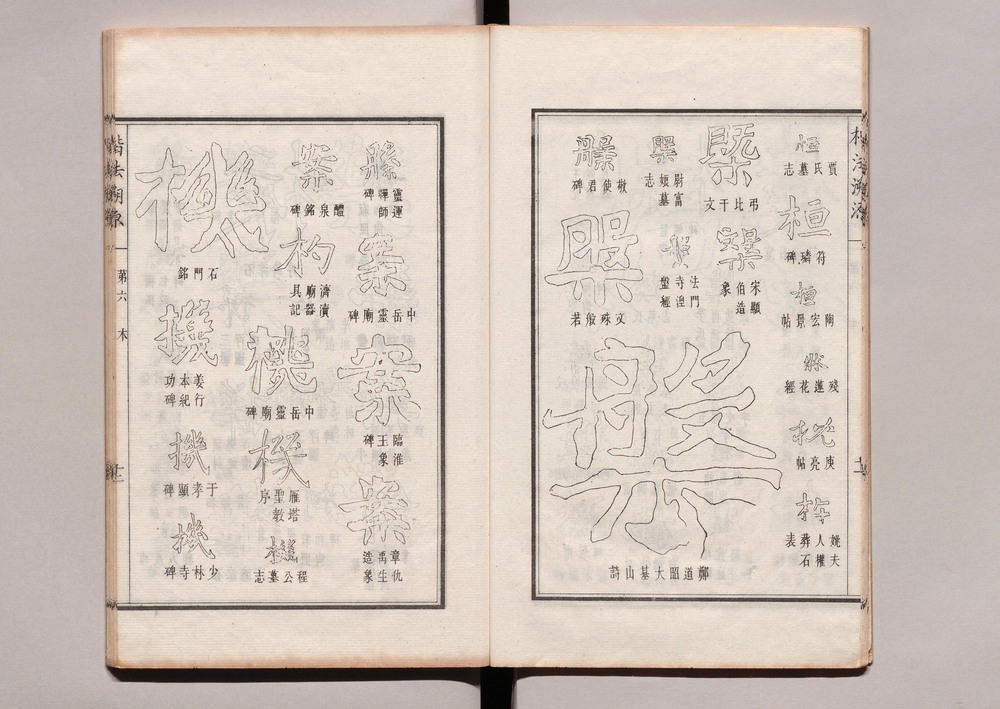 桓
賈氏墓志
桓
符璘碑
桓
陶宏景帖
殘蓮花經
庾亮帖
姚夫
人權
葬石
表
弔比干文
宋顯
伯造
象
尉富
娘墓
志
法門
寺涅
盤經
敬使君碑
文殊般若
鄭道昭大基山詩
靈運
禪師
碑
案
中岳靈廟碑
案
臨淮
王象
碑
案
章仇
禹生
造象
案
醴泉銘碑
杓
濟瀆
廟器
具記
機
中岳靈廟碑
機
雁塔
聖教
序
機
程公墓志
機
石門銘
機
姜行
本紀
功碑
機
于孝顯碑
機
少林寺碑
楷法溯源
第六
木
十二